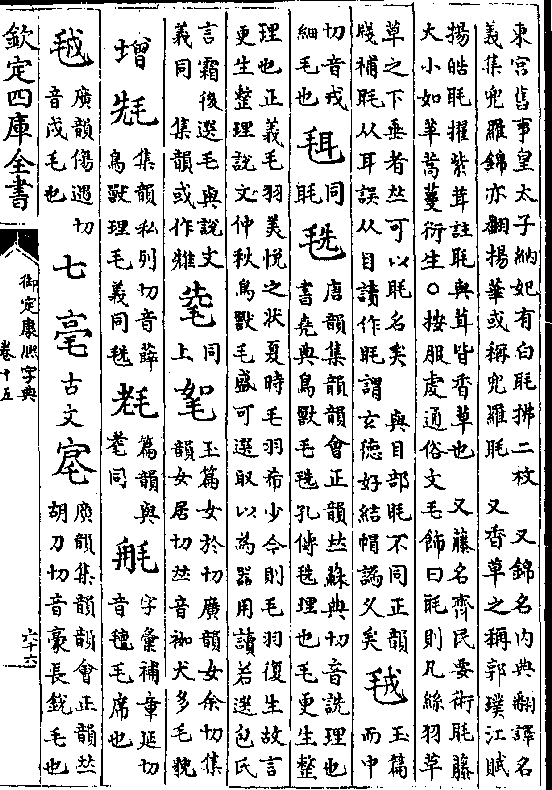 東宮舊事皇太子納妃有白毦拂二枚　又錦名内典翻譯名
義集兜羅錦亦翻揚華或稱兜羅毦　又香草之稱郭璞江賦
揚皓毦擢紫茸註毦與茸皆香草也　又藤名齊民要術毦藤
大小如苹蒿蔓衍生○按服虔通俗文毛飾曰毦則凡絲羽草
草之下垂者𠀤可以毦名矣　與目部眊不同正韻
牋補毦从耳誤从目讀作眊謂玄德好結帽譌乂矣
毧　玉篇而中
切音戎
細毛也
毦　同毦
毨　唐韻集韻韻會正韻𠀤蘇典切音詵理也
書堯典鳥獸毛毨孔傳毨理也毛更生整
理也正義毛羽美悅之狀夏時毛羽希少今則毛羽復生故言
更生整理說文仲秋鳥獸毛盛可選取以為器用讀若選包氏
言霜後選毛與說文
義同　集韻或作㲝
毟　同上
毠　玉篇女於切廣韻女余切集
韻女居切𠀤音袽犬多毛貌
增
毨　集韻私列切音薛
鳥獸理毛義同毨
耄　篇韻與
耄同
㲌　字彙補章延切
音氊毛席也
毧　廣韻傷遇切
音戍毛也
七
毫　古文㝧
廣韻集韻韻會正韻𠀤
胡刀切音豪長銳毛也
欽定四庫全書
御定康熙字典
卷十五
六十六